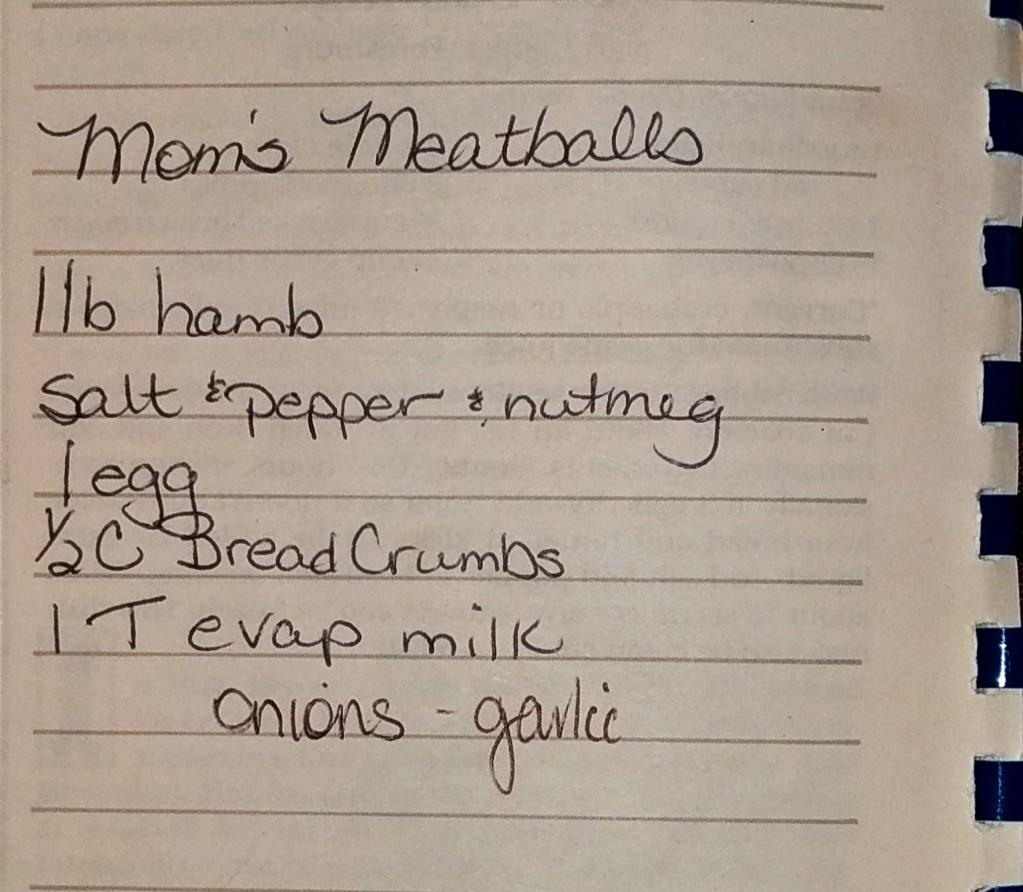 Mom's Meatballs
1 lb hamb
Salt & pepper & nutmeg
1 egg
1/2 C Bread Crumbs
1 T evap milk
onions - garlic